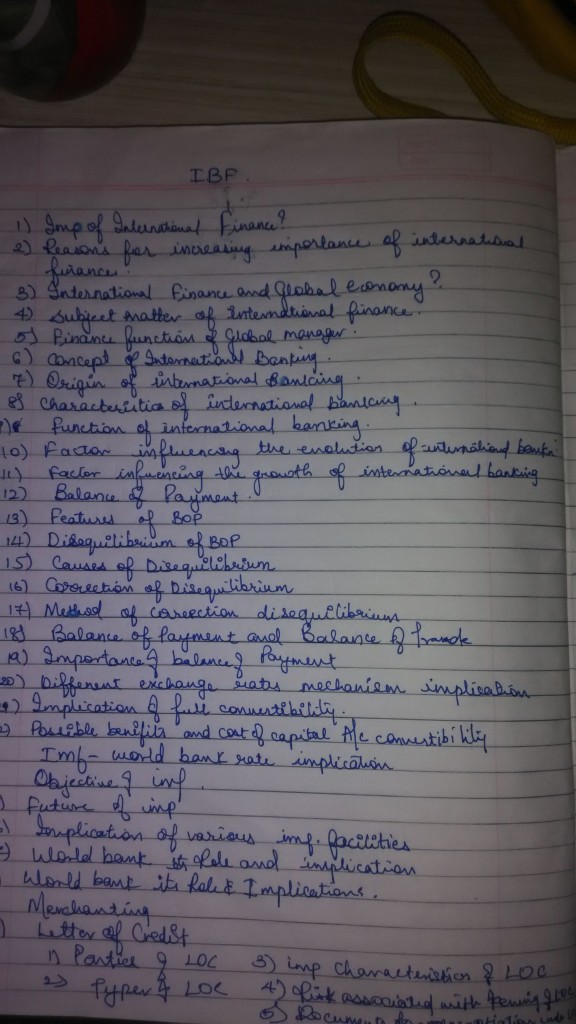 IBF.
1) Imp of International Finance?
2) Reasons for increasing importance of international
finance.
3) International Finance and Global economy?
4) Subject matter of International finance.
5) Finance function of Global manager.
6) Concept of International Banking.
7) Origin of international Banking.
8) Characteristics of international banking.
function of international banking.
10) Factor influencing the evolution of international
11) Factor influencing the growth of international banking
12) Balance of Payment.
13) Features of BOP
14) Disequilibrium of BOP
15) Causes of Disequilibrium
16) Correction of Disequilibrium
17) Method of correction disequilibrium
18) Balance of Payment and Balance of
19) Importance of balance of Payment
20) Different exchange rates mechanism implication
Implication of full convertibility.
Possible benifits and cost of capital A/c convertibility
Imf - world bank rate implication
Objective of imf.
Future of
Implication of various imf. facilities
World bank Role and implication
World bank its Role & Implications.
Merchanting
Letter of Credit
1) Partice of LOC 3) imp characteristics of LOC
2) of LOC 4) Risk associated with
5)